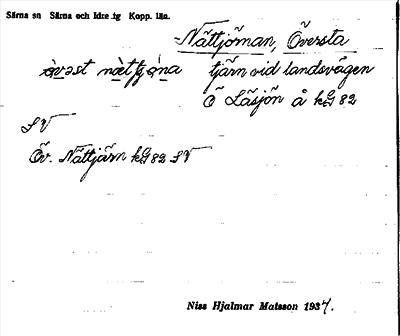 Särna sn Särna och Idre tg Kopp. län.
Nättjörnan, Översta
tjärn vid landsvägen
Ö Läsjön å kG 82
SV
Öv. Nättjärn kG 82 SV
Niss Hjalmar Matsson 1937.